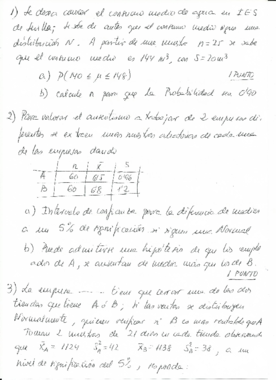 1) Se desea conocer el consumo medio de agua en IES
de Sevilla; se sabe de antes que el consumo medio sigue una
distribución N. A partir de una muestra n=25 se sabe
que el consumo medio es 144 m³, con S=20m³
a) P(140 ≤ μ ≤ 148) 1 PUNTO
b) calcule n para que la Probabilidad sea 0'90
2) Para valorar el absentismo a trabajar de 2 empresas di-
ferentes se extraen unas muestras aleatorias de cada una
de las empresas dando:
n x̄ S
A 60
B 60 6'8 1'2
a) Intervalo de confianza para la diferencia de medias
a un 5% de significación si siguen una Normal
b) Puede admitirse una hipótesis de que los emplea-
dos de A, se ausentan de media más que los de B.
1 PUNTO
3) La empresa ...... tiene que cerrar una de las dos
tiendas que tiene A ó B; si las ventas se distribuyen
Normalmente, quieren verificar si B es más rentable que A
Toman 2 muestras de 21 días en cada tienda observando
que x̄A = 1124 S²A = 42 x̄B = 1138 S²B = 38, a un
nivel de significación del 5%, responda: